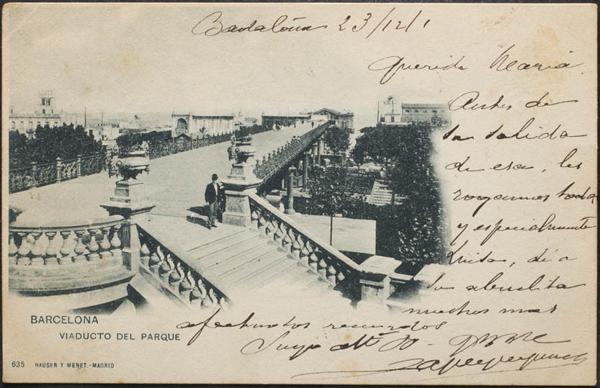 Badalona 23/12/1
Querida Maria
Antes de
la salida
de esa, les
rogamos toda
y especialmente
de a
la abuelita
muchos mas
afectuosos recuerdos
BARCELONA
VIADUCTO DEL PARQUE
635 HAUSER Y MENET.-MADRID